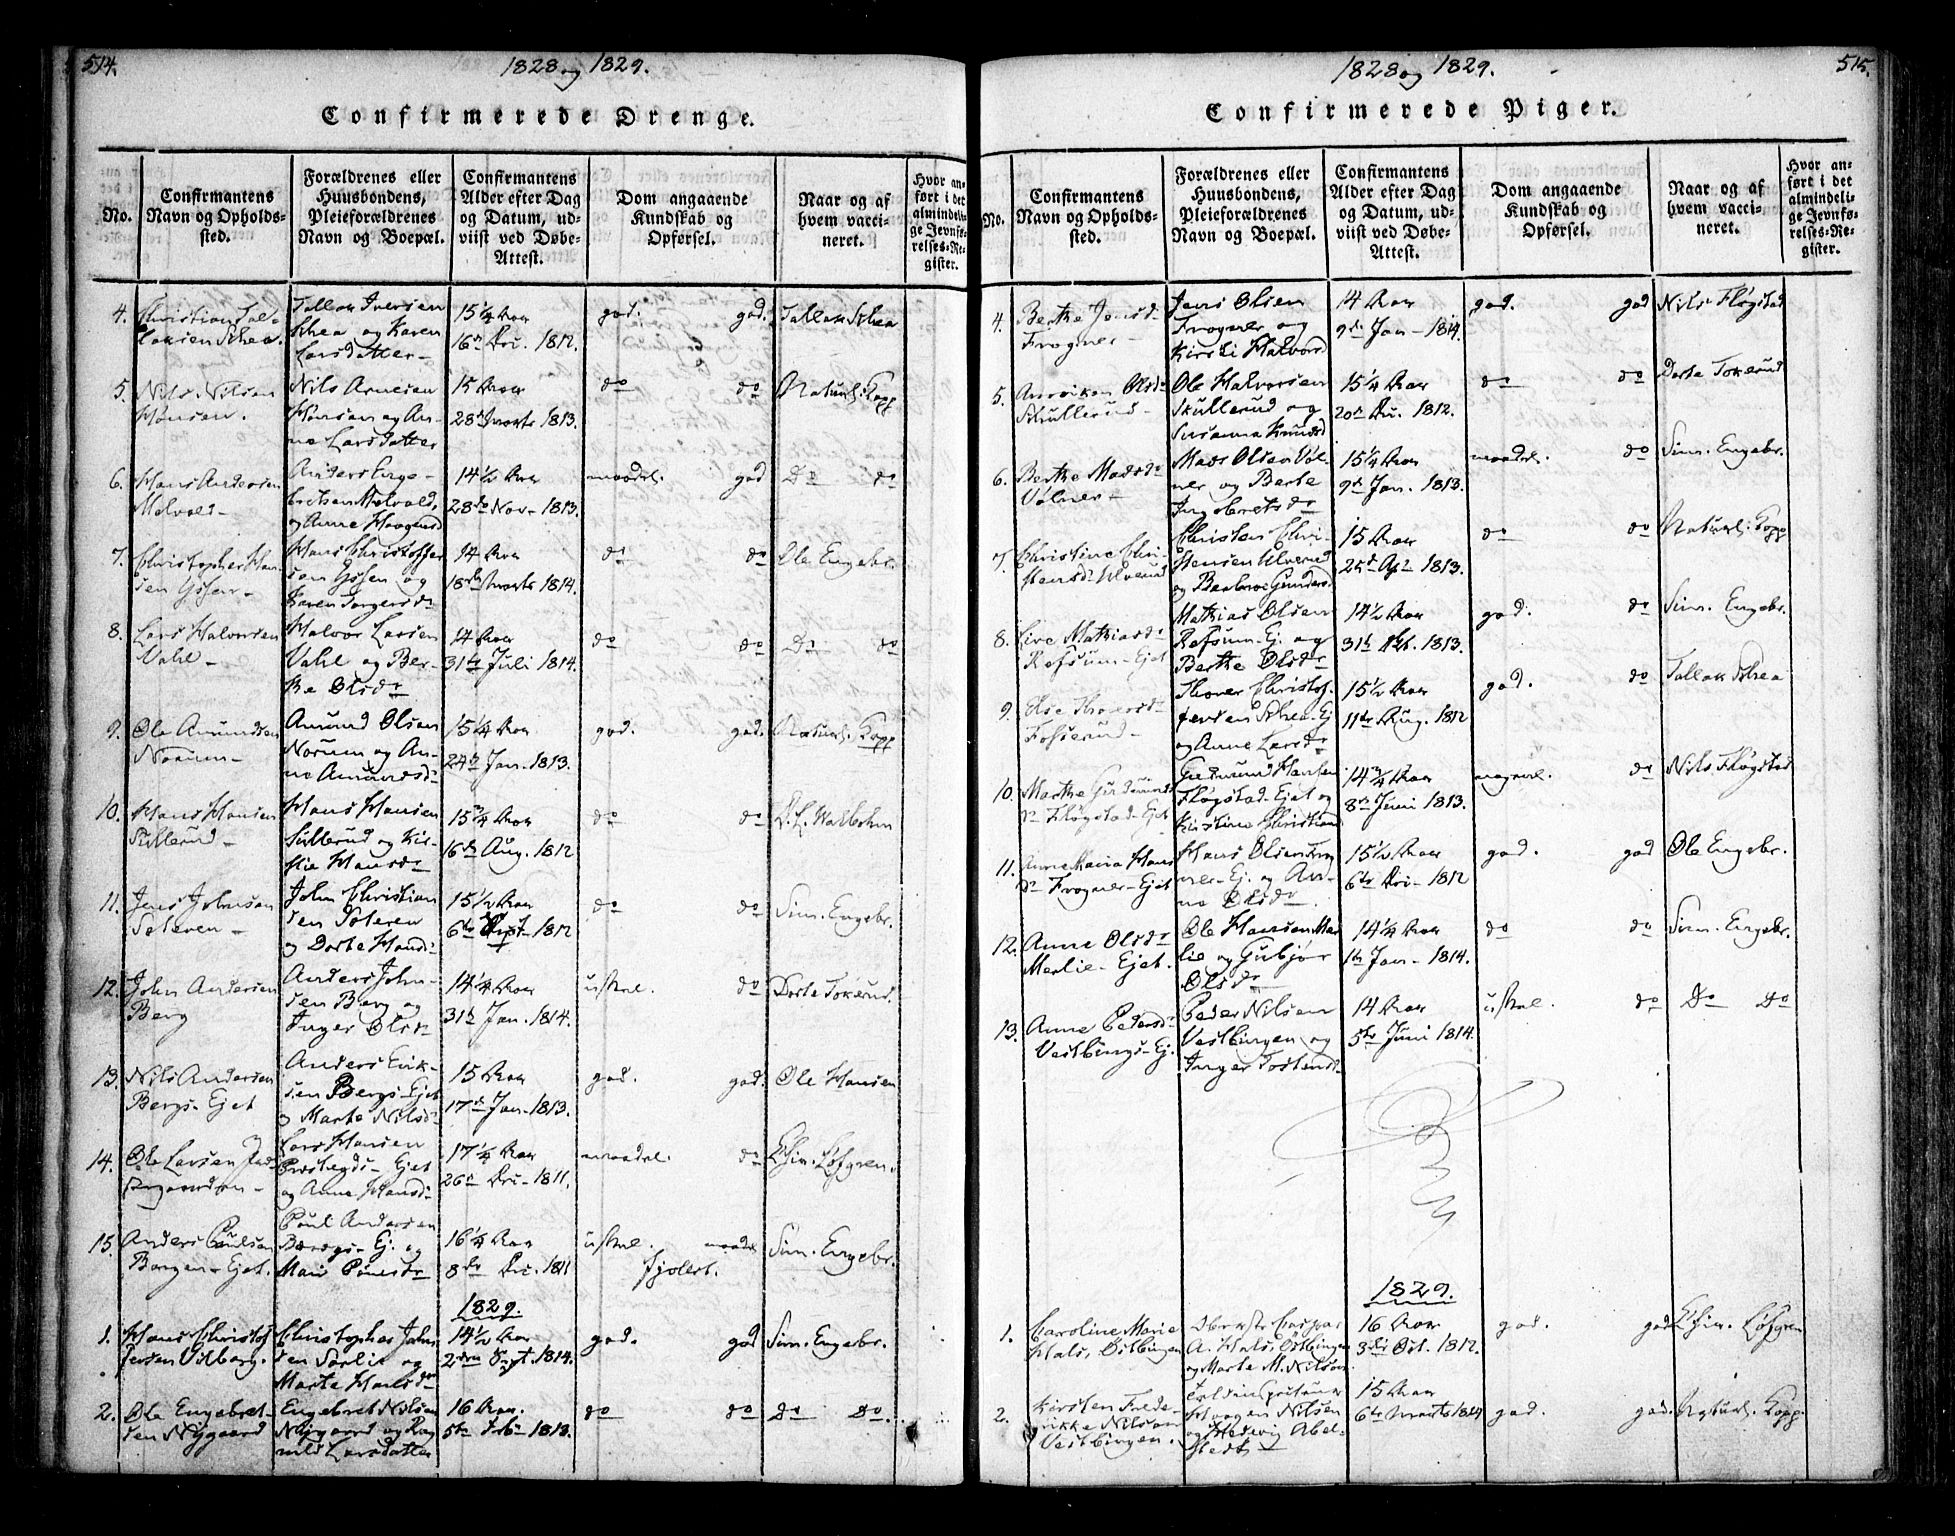 514.
1828 og 1829.
Confirmerede Drenge.
No.
Confirmantens
Navn og Opholds-
sted.
Forældrenes eller
Huusbondens,
Pleieforældrenes
Navn og Boepæl.
Confirmantens
Alder efter Dag
og Datum, ud-
viist ved Døbe-
Attest.
Dom angaaende
Kundskab og
Opførsel.
Naar og af
hvem vacci-
neret.
Hvor an-
ført i det
almindeli-
ge Jevnfø-
relses-Re-
gister.
4.
Christian Tal-
laksen Schea.
Tallak Iversen
Schea og Karen
Larsdatter
15 1/4 Aar
16de Dec. 1812.
god. god.
Tallak Schea
5.
Nils Nilsen
Hønsen.
Nils Arnesen
Hønsen og An-
ne Larsdatter
15 Aar
28de Marts 1813.
do do
Naturl. Kopp
6.
Hans Andersen
Melvold
Anders Enge-
bretsen Melvold,
og Anne Haagensd
14 1/2 Aar
28de Nov. 1813.
maadel. god
Do do
7.
Christopher Han-
sen
Hans Christoffer
sen og
Karen Torgersdr
14 Aar
18de Marts 1814.
do do
Ole Engebr.
8.
Lars Halvorsen
Vahl
Halvor Larsen
Vahl og Ber-
the Olsdr
14 Aar
31te Juli 1814.
do do
Do do
9.
Ole Amundsen
Norum
Amund Olsen
Norum og An-
ne Amundsdr
15 1/4 Aar
24de Jan. 1813.
god. god.
Naturl. Kopp
10.
Hans Hansen
Sullerud
Hans Hansen
Sullerud og Kir-
stie Hansdr
15 3/4 Aar
16de Aug. 1812
do do
11.
Jens Johnsen
Toteren
John Christian
sen Toteren
og Dorte Hansdr
15 1/2 Aar
6te Sept. 1812
do do
Sim. Engebr.
12.
John Andersen
Berg
Anders John-
sen Berg og
Inger Olsdr
14 1/4 Aar
31te Jan. 1814.
do
Dorte Tokerud
13.
Nils Andersen
Bergs-Ejet
Anders Erik-
sen Bergs-Ejet
og Marte Nilsdr
15 Aar
17de Jan. 1813.
god. god.
Ole Hansen
14.
Ole Larsen
Lars Hansen
Præstegds-Ejet
og Anne Hansdr
17 1/4 Aar
26de Dec. 1811.
maadel. do
Løfgren.
15.
Anders Poulsen
Borgen-Ejet.
Poul Andersen
Ej. og
16 1/4 Aar
8de Dec. 1811
Sim. Engebr.
1829.
1.
Hans Christof
fersen Vilberg.
Christopher John
sen Sørlie og
Marte Hansdr
14 1/2 Aar
2den Sept. 1814.
god. god
Sim. Engebr.
2.
Ole Engebret-
sen Nygaard
Engebret Nilsen
Nygaard og Rag
nild Larsdatter
16 Aar.
5te Feb. 1813.
do do
Do Do.
515.
1828 og 1829.
Confirmerede Piger.
No.
Confirmantens
Navn og Opholds-
sted.
Forældrenes eller
Huusbondens,
Pleieforældrenes
Navn og Boepæl.
Confirmantens
Alder efter Dag
og Datum, ud-
viist ved Døbe-
Attest.
Dom angaaende
Kundskab og
Opførsel.
Naar og af
hvem vacci-
neret.
Hvor an-
ført i det
almindeli-
ge Jevnfø-
relses-Re-
gister.
4.
Berthe Jensdr
Frogner
Jens Olsen
Frogner og
Kirsti Halvorsd
14 Aar
9de Jan. 1814.
god. god
Nils Fløgstad
5.
Annviken Olsdr
Skullerud
Ole Halvorsen
Skullerud og
Susanna Knudsd
15 1/4 Aar
20de Dec. 1812.
do do
Dorte Tokerud
6.
Berthe Madsdr
Vølner
Mads Olsen Vøl-
ner og Berte
Ingebretsdr
15 1/4 Aar
9de Jan. 1813.
maadel. do
Sim. Engebr.
7.
Christine Chri-
stensdr Ulverud
Christen Chri-
stensen Ulverud
og Barbroe Gundersd
15 Aar
25de Apr. 1813.
do do
Naturl. Kopp
8.
Live Mathiasdr
Refsum-Ejet
Mathias Olsen
Refsum-Ej. og
Berthe Olsdr
14 1/2 Aar
31te 1813.
god. do
Sim. Engebr.
9.
Else Thoresdr
Folserud
Thorer Christof-
fersen Schea-Ej
og Anne Larsdr
15 1/2 Aar
11te Aug. 1812
god. do
Tallak Schea
10.
Marthe Gudmunds
dr Fløgstad-Ejet
Gudmund Hansen
Fløgstad-Ejet og
Kirstine Christiansd
14 3/4 Aar
8de Juni 1813.
do
Nils Fløgstad
11.
Anne Maria Hans
dr Frogner-Ejet
Hans Olsen Frog
ner-Ej. og An-
ne Olsdr
15 1/2 Aar
6te Dec. 1812
god. god
Ole Engebr.
12.
Anne Olsdr
Merlie-Ejet.
Ole Hansen Mer
lie og Gubjør
Olsdr
14 1/4 Aar
1te Jan. 1814.
do do
Sim. Engebr.
13.
Anne Pedersdr
Vestbyngs-Ej.
Peder Nilsen
Vestbyngen og
Inger Tostensdr
14 Aar
5te Juni 1814.
do
Do Do
1829.
1.
Caroline Marie
Hals, Østbyngen
Oberstr Caspar
A. Hals, Østbyngen
og Marte M. Nilsen
16 Aar
3die Oct. 1812.
god. god
Løfgren
2.
Kirsten Frede-
rikke Nilsen
Vestbyngen.
Haagen Nilsen
og Hedevig Abel-
stedt
15 Aar
6te Marts 1814
god. god.
Naturl. Kopp.